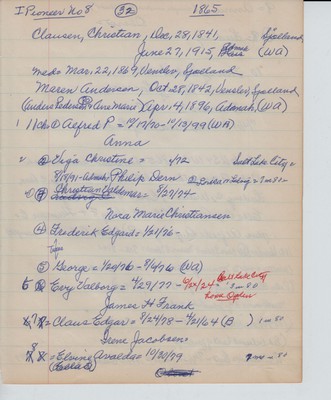 I Pioneer No 8 (32) 1865
Clausen, Christian, Dec, 28, 1841, Sjælland
June 27, 1915, (WA)
md = Mar. 22, 1869, Venslev, Sjaeland
Maren Andersen, Oct 28, 1842, Venslev, Sjaelland
(Anders Pedersen & Ane Marie) Apr. 4, 1896, (WA)
11 ch ① Alfred P = 10/17/70 - 10/13/99 (WA)
Anna
2 ② Viga Christine = /72 Salt Lake City =
8/19/91 - Philip Dern
③ Christian Valdemar = 8/27/74 -
Nora Marie Christiansen
④ Frederik Edgard = 1/21/76 -
Twin
⑤ George = 1/20/76 - 8/4/76 (WA)
6 Evy Valborg = 4/29/77 - 6/20/24 - Salt Lake City
Love Ogden
James H Frank
7 = Claus Edgar = 8/24/78 - 4/21/64 (B )
Irene Jacobsen
8 = Elvine Avalda = 10/30/79